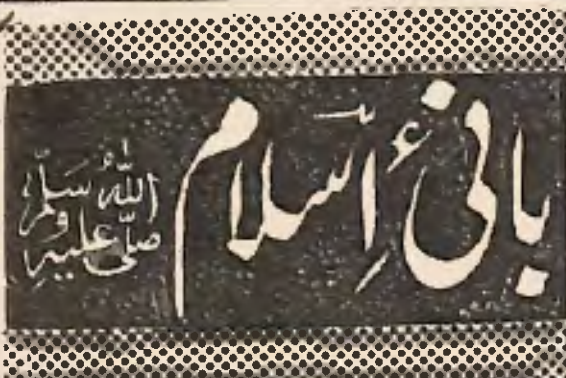 بانیٔ اِسلام صلّی اللہُ علیہِ وسلّم